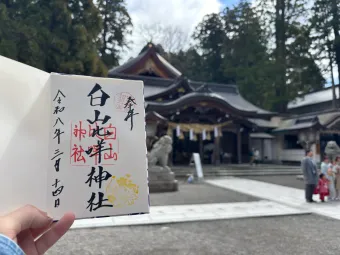 奉拝
白山比咩神社
令和八年三月十四日
白山
比咩
神社